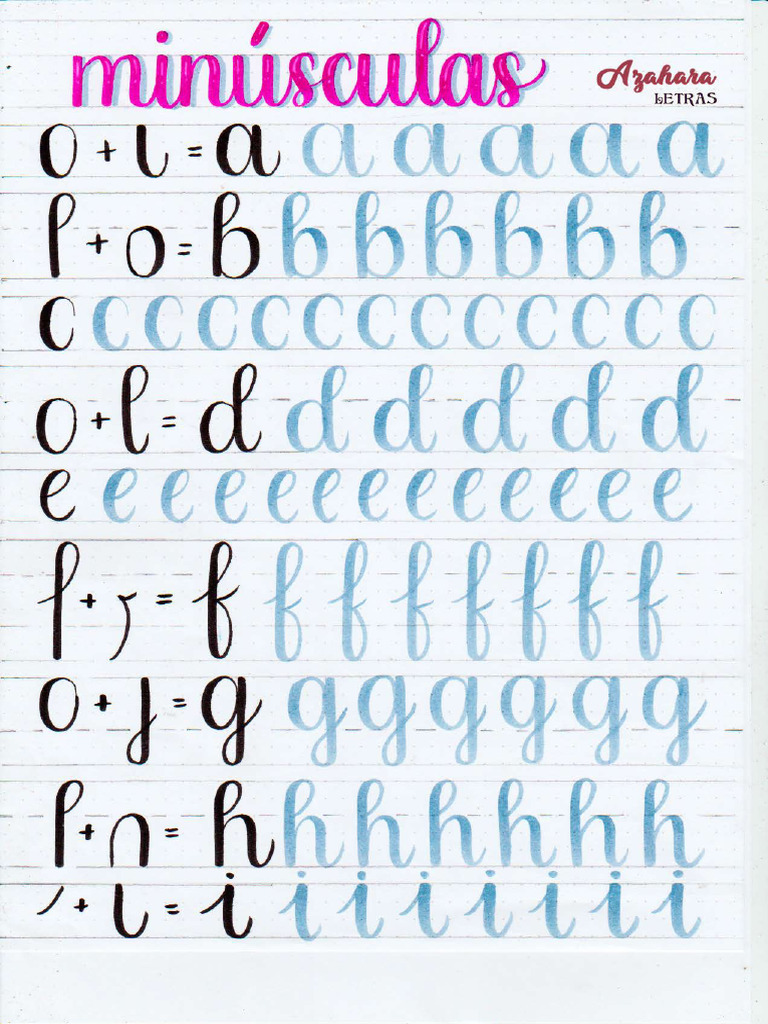 minúsculas
Azahara
LETRAS
o + ι = a a a a a a
l + o = b b b b b b b
c c c c c c c c c c c c c
o + l = d d d d d d
e e e e e e e e e e e e e
l + = f f f f f f f f
o + ȷ = g g g g g g g
l + n = h h h h h h h
/ + ι = i i i i i i i i